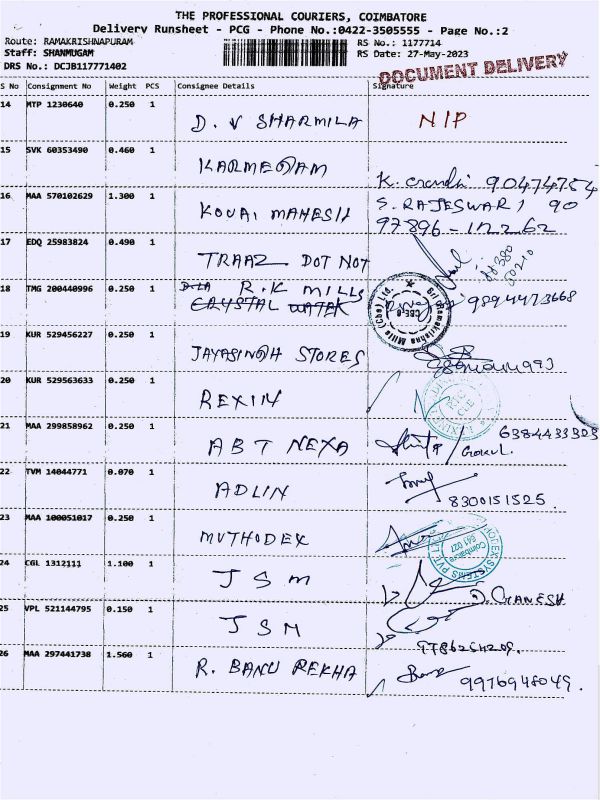 THE PROFESSIONAL COURIERS, COIMBATORE
Delivery Runsheet - PCG - Phone No.:0422-3505555 - Page No.:2
Route: RAMAKRISHNAPURAM RS No.: 1177714
Staff: SHANMUGAM RS Date: 27-May-2023
DRS No.: DCJB117771402
DOCUMENT DELIVERY
S No Consignment No Weight PCS Consignee Details Signature
14 MTP 1230640 0.250 1 D. V SHARMILA NIP
15 SVK 60353490 0.460 1 KARMEGAM
16 MAA 570102629 1.300 1 KOVAI MAHESH S. RAJESWARI 90
97896-
17 EDQ 25983824 0.490 1 TRAAZ DOT NOT
18 TMG 200440996 0.250 1 R.K MILLS 9894473668
CRYSTAL
Sri Ramakrishna Mills (Cbe) Ltd. CBE-6
19 KUR 529456227 0.250 1 JAYASINGH STORES
20 KUR 529563633 0.250 1
21 MAA 299858962 0.250 1 ABT NEXA Gokul. 6384433303
22 TVM 14044771 0.070 1 ADLIN 8300151525
23 MAA 100051017 0.250 1 MUTHODEX
Coimbatore 641 027
24 CGL 1312111 1.100 1 JSM D. GANESH
25 VPL 521144795 0.150 1 JSM
26 MAA 297441738 1.560 1 R. BANU REKHA 9976948049.